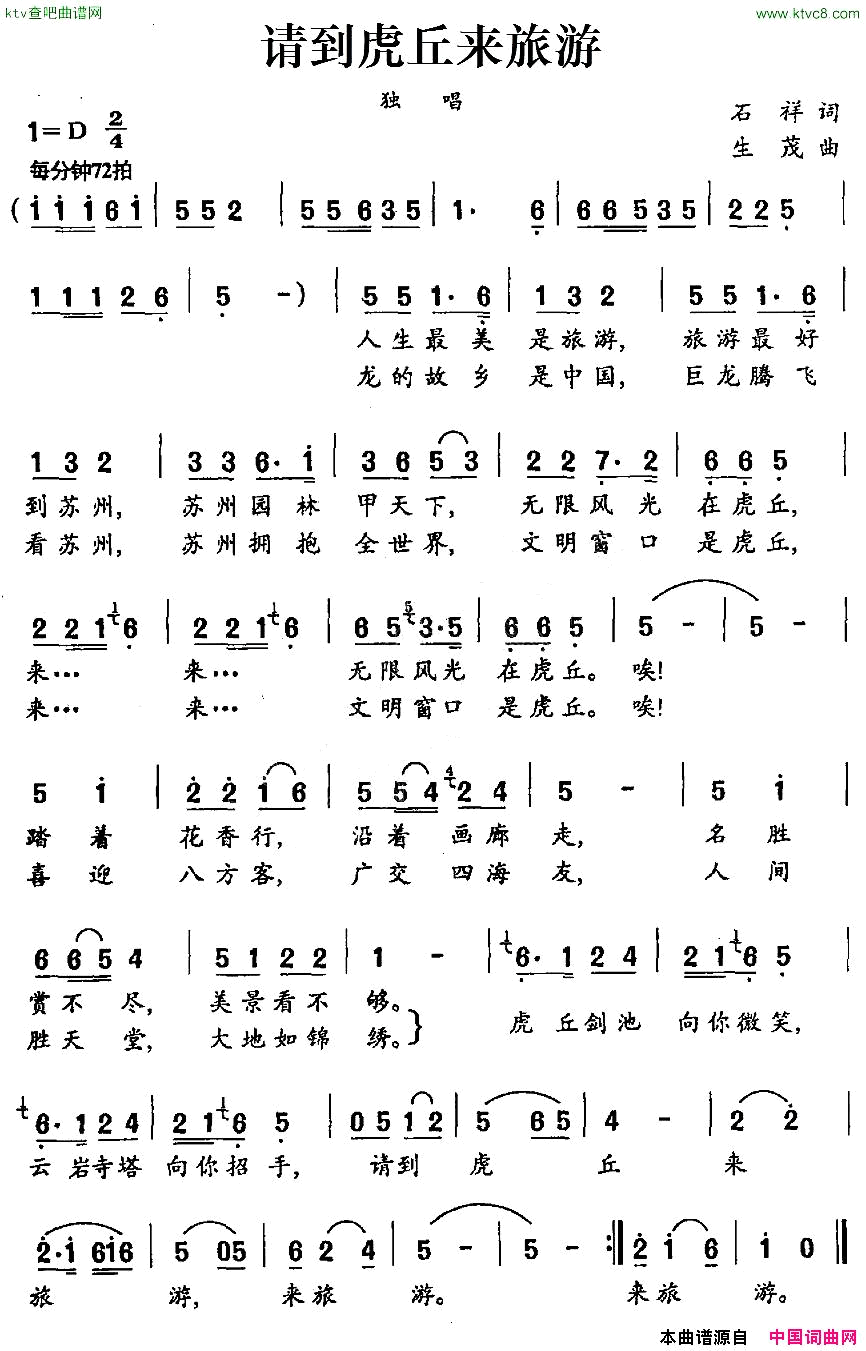 ktv查吧曲谱网
www.ktvc8.com
请到虎丘来旅游
独 唱
石 祥 词
1=D 2/4
生 茂 曲
每分钟72拍
(i i i 6 i | 5 5 2 | 5 5 6 3 5 | 1· 6 | 6 6 5 3 5 | 2 2 5 |
1 1 1 2 6 | 5 -) | 5 5 1· 6 | 1 3 2 | 5 5 1· 6 |
人生最美 是旅游, 旅游最好
龙的故乡 是中国, 巨龙腾飞
1 3 2 | 3 3 6· i | 3 6 5 3 | 2 2 7· 2 | 6 6 5 |
到苏州, 苏州园林 甲天下, 无限风光 在虎丘,
看苏州, 苏州拥抱 全世界, 文明窗口 是虎丘,
2 2 1 6 | 2 2 1 6 | 6 5 3·5 | 6 6 5 | 5 - | 5 - |
来… 来… 无限风光 在虎丘。 唉!
来… 来… 文明窗口 是虎丘。 唉!
5 i | 2 2 i 6 | 5 5 4 2 4 | 5 - | 5 i |
踏着 花香行, 沿着画廊 走, 名胜
喜迎 八方客, 广交四海 友, 人间
6 6 5 4 | 5 1 2 2 | 1 - | 6· 1 2 4 | 2 1 6 5 |
赏不尽, 美景看不 够。
虎丘剑池 向你微笑,
胜天堂, 大地如锦 绣。}
6· 1 2 4 | 2 1 6 5 | 0 5 1 2 | 5 6 5 | 4 - | 2 2 |
云岩寺塔 向你招手, 请到 虎 丘 来
2·i 6i6 | 5 05 | 6 2 4 | 5 - | 5 - :‖ 2 i 6 | i 0 ‖
旅 游, 来旅 游。 来旅 游。
本曲谱源自 中国词曲网